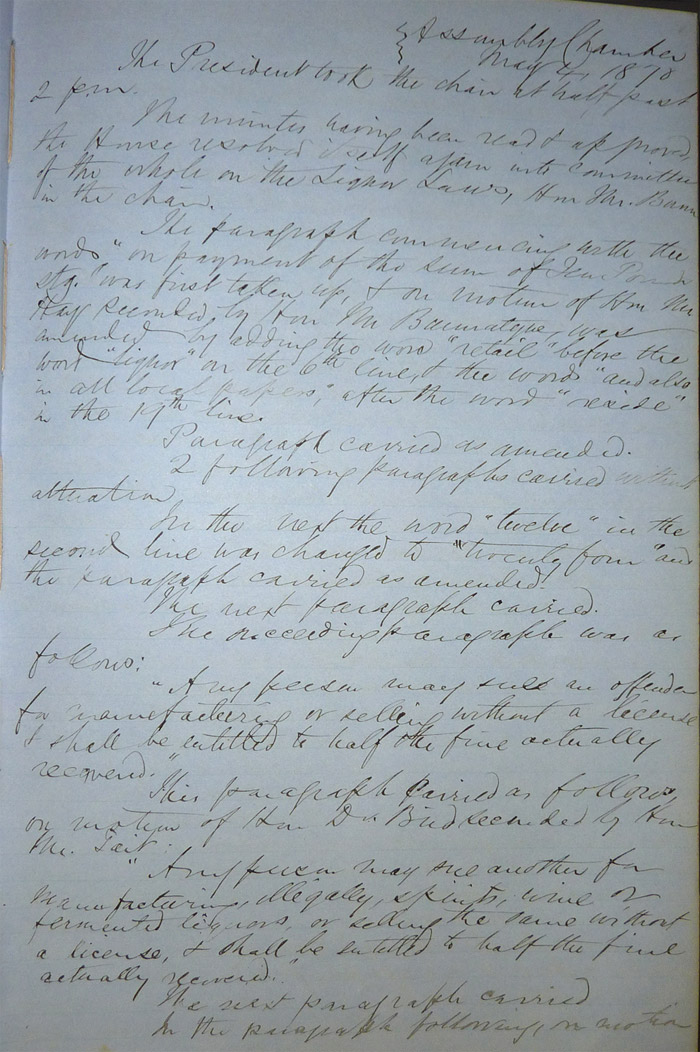 Assembly Chamber
May 4, 1870
The President took the chair at half past
2 p.m.
The minutes having been read & approved,
the House resolved itself again into committee
of the whole on the Liquor Laws, Hon Mr.
in the chair.
The paragraph commencing with the
words "on payment of the sum of Ten Pounds
stg." was first taken up, & on motion of Hon Mr
Hay seconded by Hon Mr was
amended by adding the word "retail" before the
word "liquor" on the 6th line, & the words "and also
in all local papers," after the word "reside"
in the 19th line.
Paragraph carried as amended.
2 following paragraphs carried without
alteration
In the next the word "twelve" in the
second line was changed to "twenty four" and
the paragraph carried as amended.
The next paragraph carried.
The succeeding paragraph was as
follows:
"Any person may sue an offender
for manufacturing or selling without a license
& shall be entitled to half the fine actually
recovered."
This paragraph carried as follows
on motion of Hon Dr. Bud seconded by Hon
Mr. Tait:
"Any person may sue another for
manufacturing, illegally, spirits, wine or
fermented liquors, or selling the same without
a license, & shall be entitled to half the fine
actually recovered."
The next paragraph carried
In the paragraph following, on motion